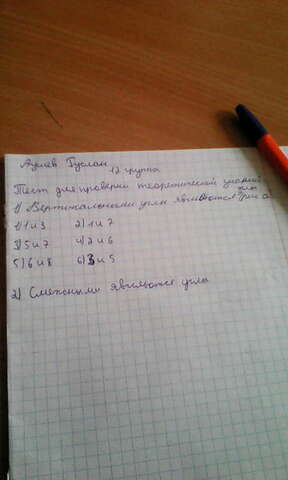 Руслан
12 группа
Тест для проверки теоретической
1) Вертикальными углы являются
1) 1 и 3 2) 1 и 2
3) 5 и 7 4) 2 и 6
5) 6 и 8 6) 3 и 5
2) Смежными являются углы